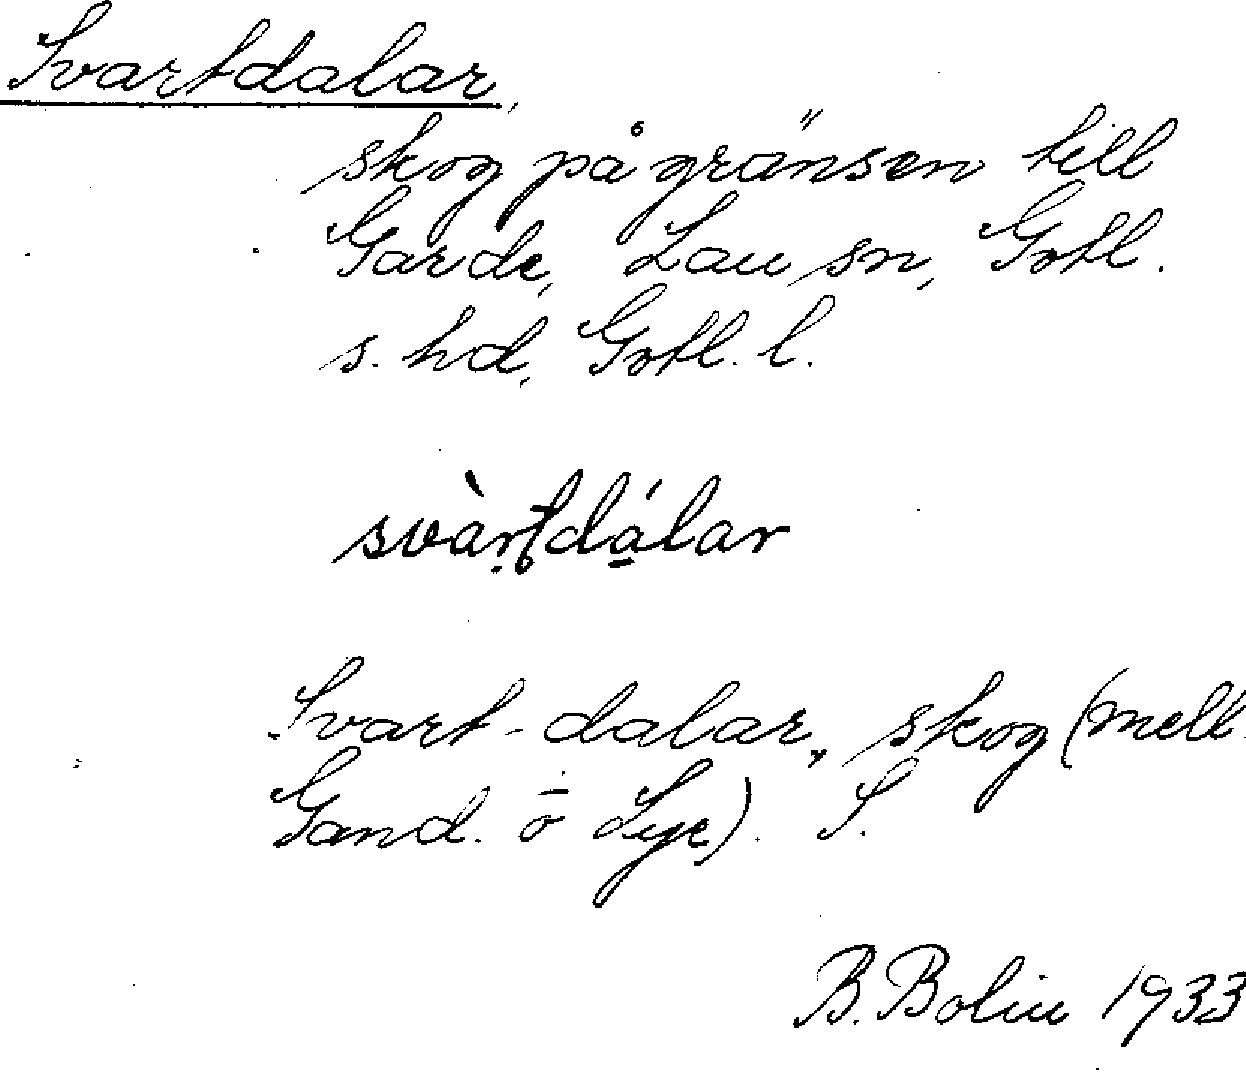 Svartdalar,
skog på gränsen till
Garde, Lau sn, Gotl.
s. hd, Gotl. l.
svàrtdálar
Svart-dalar, skog (mell.
Gand. o Lye). S.
B. Bolin 1933